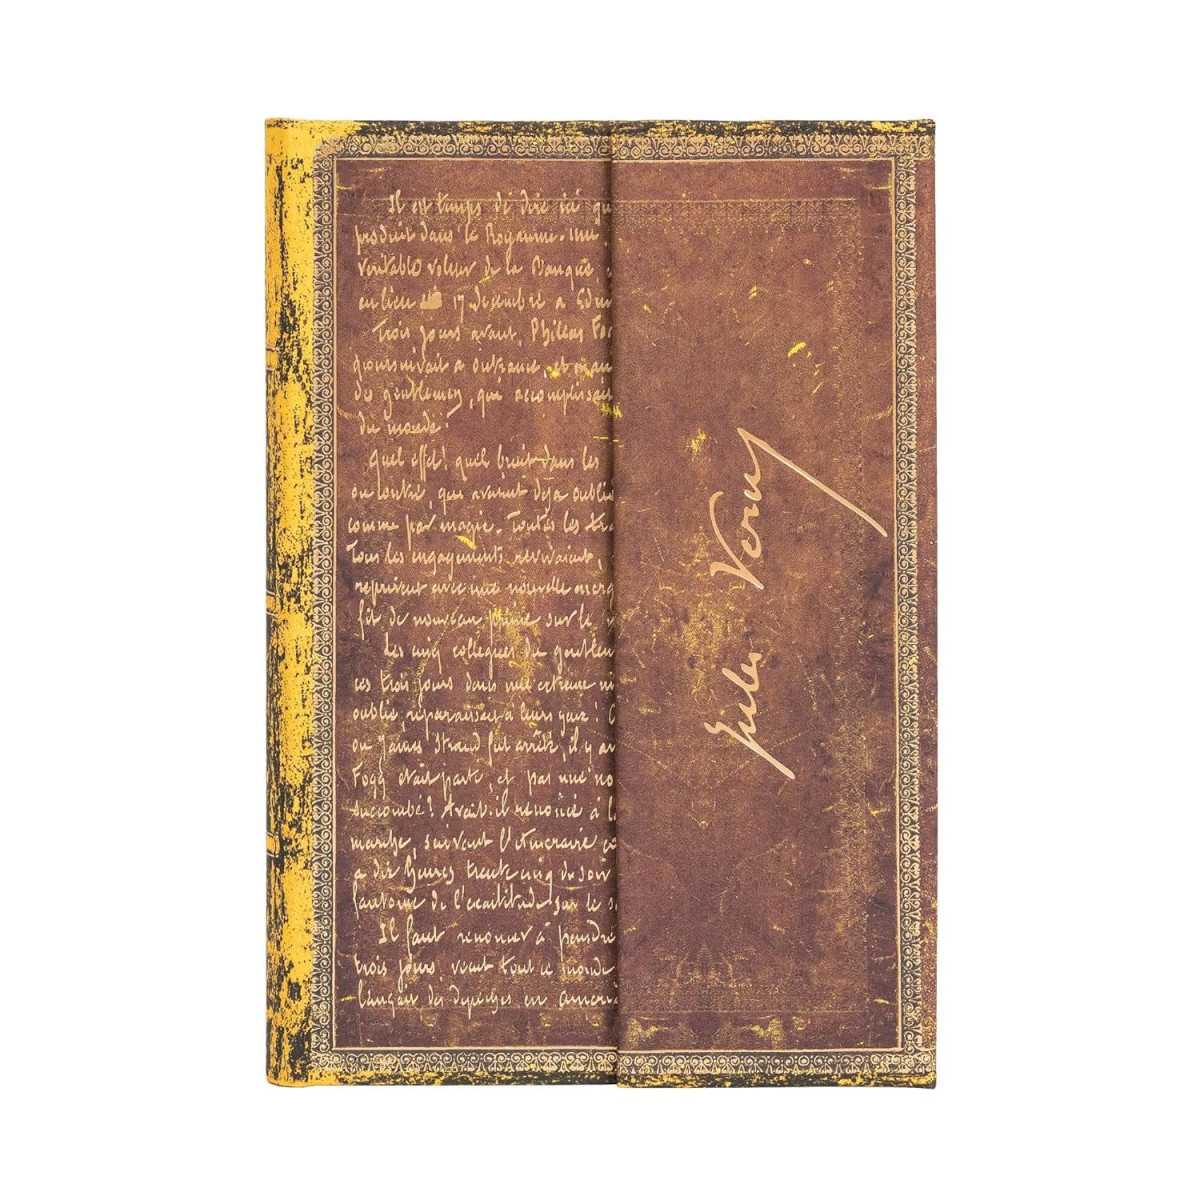 Il est temps de dire ici qu
produit dans le Royaume-Uni
véritable voleur de la Banque
en lieu 17 décembre à Edim
Trois jours avant, Phileas Fo
poursuivait à outrance, et main
des gentlemen, qui accomplissait
du monde.
Quel effet! quel bruit dans les
ou contre, qui avaient déjà oublié
comme par magie. Toutes les tra
Tous les engagements revivaient,
reprirent avec une nouvelle énerg
fit de nouveau prime sur le
Les cinq collègues du gentlem
ces trois jours dans une certaine in
oublié, reparaissait à leurs yeux!
où James Strand fut arrêté, il y av
Fogg était parti, et pas une no
succombé? Avait-il renoncé à l
marche, suivant l'itinéraire co
à dix heures trente cinq du soir
fantôme de l'exactitude, sur le s
Il faut renoncer à peindre
trois jours, vécut tout ce monde
lançait des dépêches en Améri
Jules Verne